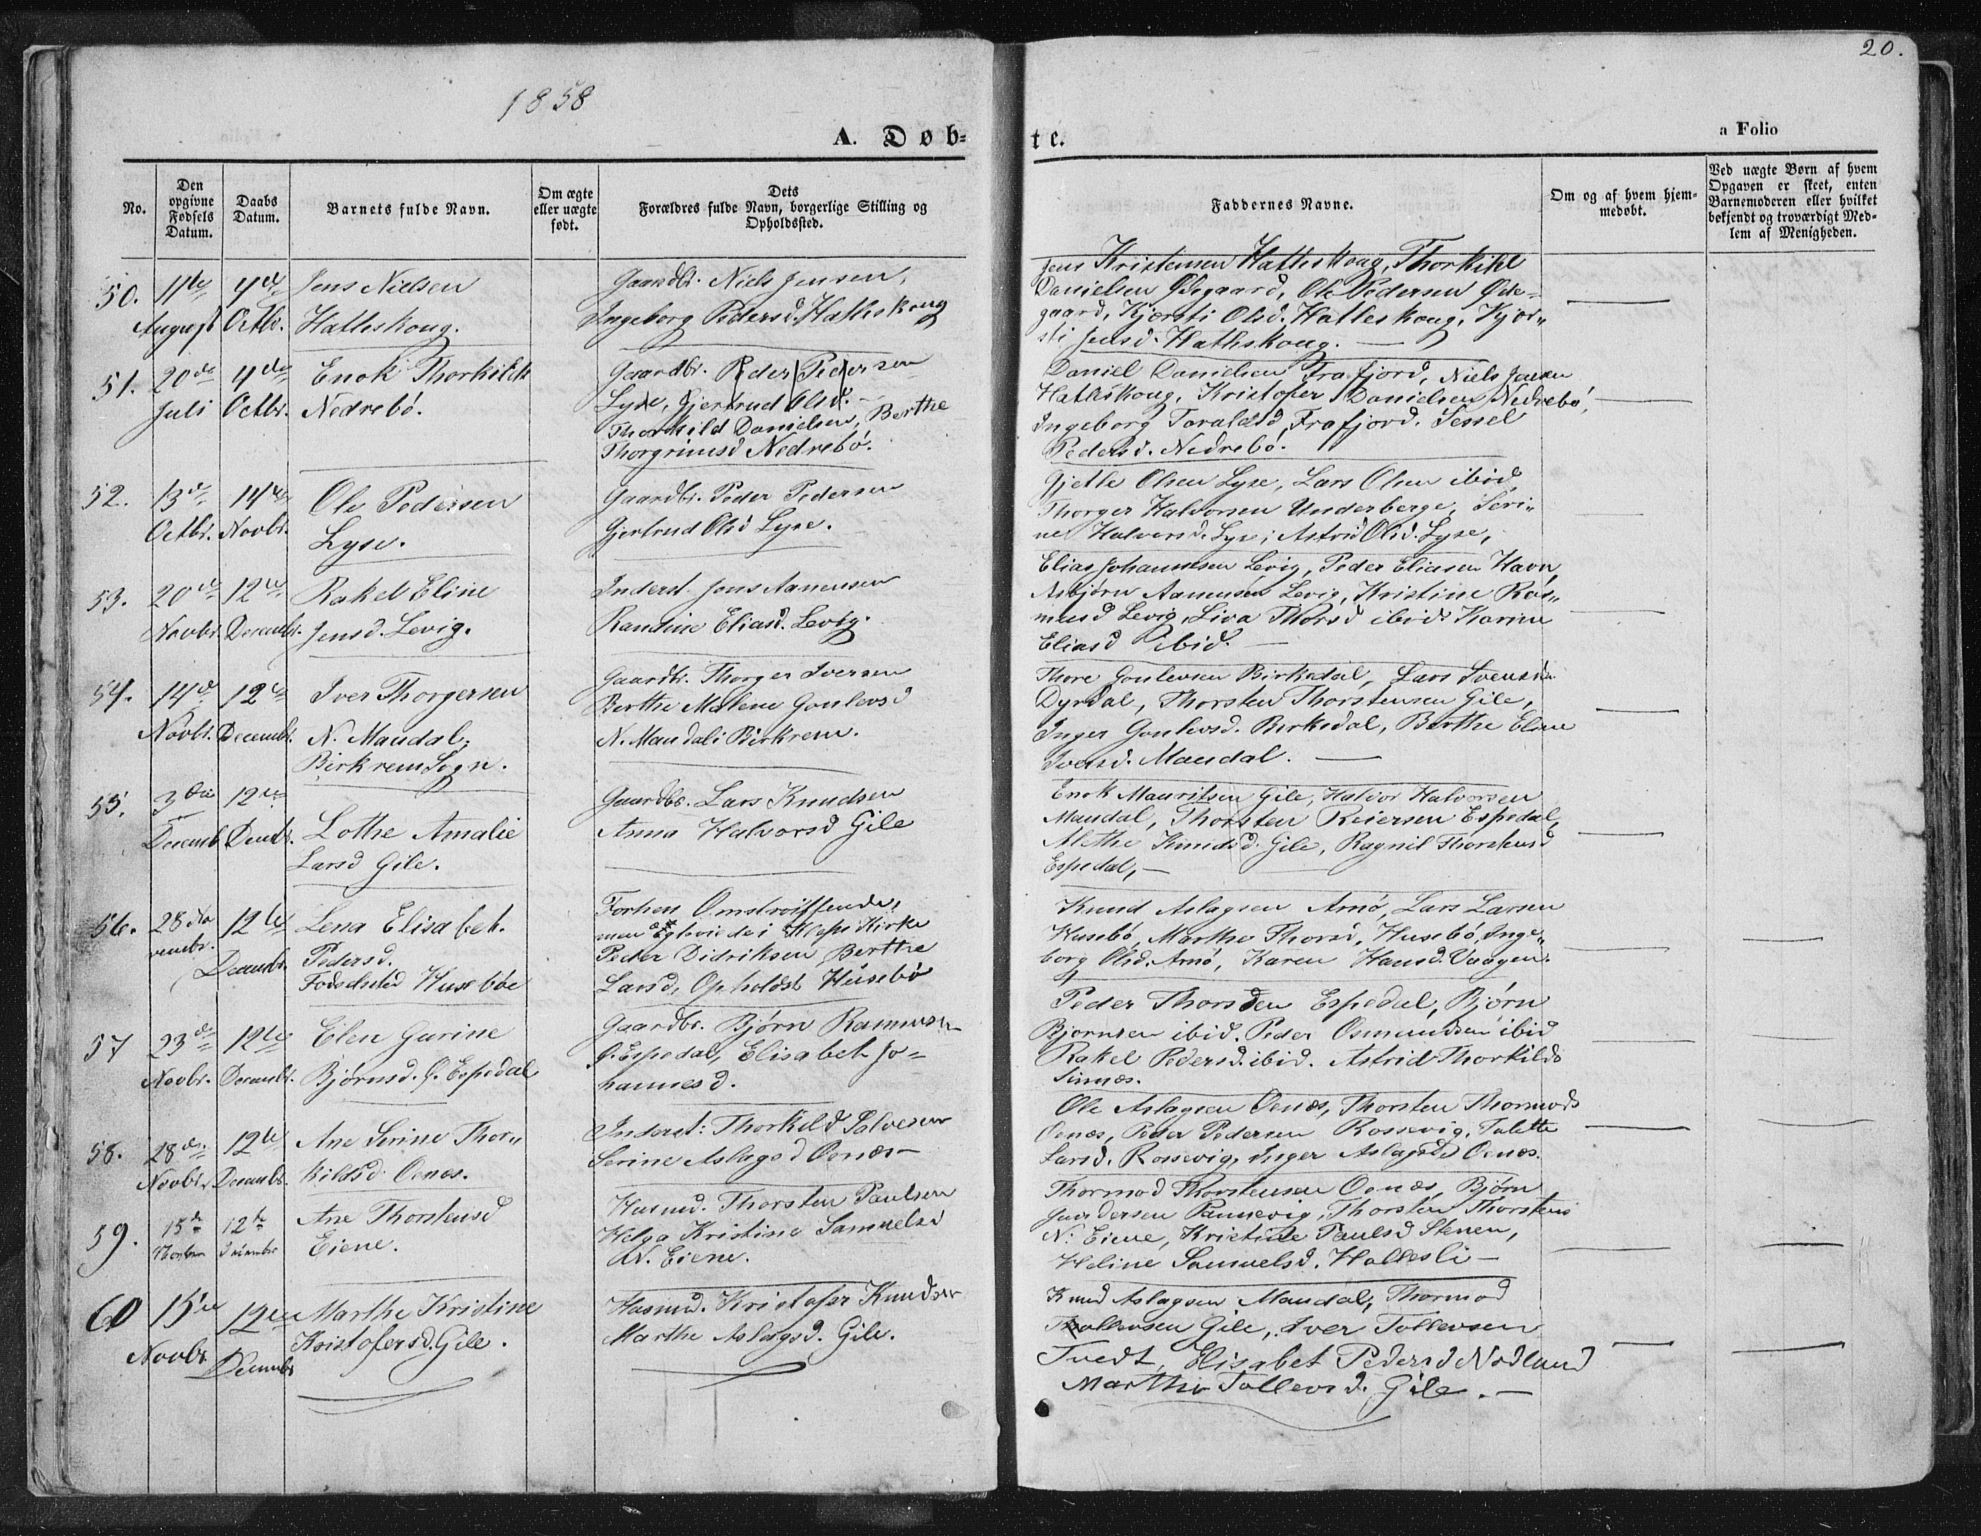 20.
1858
A. Døb=
te.
a Folio
No.
Den opgivne Fødsels Datum.
Daabs Datum.
Barnets fulde Navn.
Om ægte eller uægte født.
Dets Forældres fulde Navn, borgerlige Stilling og Opholdssted.
Faddernes Navne.
Om og af hvem hjem-medøbt.
Ved uægte Børn af hvem Opgaven er skeet, enten Barnemoderen eller hvilket bekjendt og troværdigt Med-lem af Menigheden.
50.
11te
August
4de
Octbr.
Jens Nielsen
Hatleskoug.
Gaardbr. Niels Jensen,
Ingeborg Pedersd. Hatleskoug
Jens Kristensen Hatleskoug, Thorkild
Danielsen Ødegaard, Ole Pedersen Øde=
gaard, Kjersti Olsd. Hatleskoug, Kjer=
sti Jensd. Hatleskoug. —
51.
20de
Juli
4de
Octbr.
Enok Thorkilds
Nedrebö.
Gaardbr. Peder Pedersen
Lyse, Gjertrud Olsd. —
Thorkild Danielsen, Berthe
Thorgrimsd Nedrebö.
Daniel Danielsen Frafjord, Niels Jensen
Hatleskoug, Kristofer Danielsen Nedrebö,
Ingeborg Toraldsd, Frafjord. Sessel
Pedersd. Nedrebö.
52.
13de
Octbr.
14de
Novbr.
Ole Pedersen
Lyse.
Gaardbr. Peder Pedersen
Gjertrud Olsd Lyse.
Gjetle Olsen Lyse, Lars Olsen ibid,
Thorger Halvorsen Underberge, Seri=
ne Halvorsd. Lyse, Astrid Olsd. Lyse,
53.
20de
Novbr.
12te
Decembr.
Rakel Eline
Jensd. Levig.
Inderst. Jens Aamunsen
Randine Eliasd. Levig.
Elias Johannesen Levig, Peder Eliasen Havn,
Asbjørn Aamunsen Levig, Kristine Ras=
musd Levig, Liva Thorsd ibid. Karine
Eliasd ibid. —
54.
14de
Novbr.
12te
Decembr.
Iver Thorgersen
N. Maudal,
Birkrem Sogn.
Gaardbr. Thorger Iversen
Berthe Malene Gonlevsd
N. Maudal i Birkrem.
Thore Gonlevsen Birkedal, Lars Svensen
Dyrdal, Thorsten Thorstensen Gile,
Inger Gonlevsd. Birkedal, Berthe Eline
Iversd. Maudal. —
55.
3die
Decemb.
12te
Decmbr.
Lothe Amalie
Larsd Gile.
Gaardbr. Lars Knudsen
Anna Halvorsd Gile
Enok Mauritsen Gile, Halvor Halvorsen
Maudal, Thorsten Reiersen Espedal,
Alethe Knudsd. Gile, Ragnil Thorstensd
Espedal, —
56.
28 No
vembr.
12te
Decembr.
Lena Elisabet.
Pedersd.
Fødested Husebøe
Forhen Omstreiffende,
men Egteviede i Klepe Kirke
Peder Didriksen Berthe
Larsd, Opholdst Husebö
Knud Aslagsen Arnö, Lars Larsen
Husebö, Marthe Thorsd, Husebö, Inge=
borg Olsd. Arnö, Karen Hansd. Vaagen.
57
23de
Novbr.
12te
Decembr.
Elen Gurine
Bjørnsd. G. Espedal
Gaardbr. Bjørn Ramussen
G. Espedal, Elisabet Jo=
hannesd.
Peder Thorsden Espedal, Bjørn
Bjørnsen ibid. Peder Osmundsen ibid
Rakel Pedersd. ibid. Astrid Thorkilds
Sinnes.
58.
28de
Novbr.
12te
Decembr.
Ane Serine Thor=
kildsd. Oenæs.
Inderst: Thorkild Salvesen
Serine Aslagsd Oenæs —
Ole Aslagsen Oenæs, Thorsten Thormods
Oenæs, Peder Pedersen Rossevig, Talette
Larsd. Rossevig, Inger Aslagsd Oenæs.
59.
15de
12te
Ane Thorstensd
Eiene.
Husmd. Thorsten Paulsen
Helga Kristine Samuelsd
N. Eiene.
Thormod Thorstensen Oenæs, Bjørn
Gundersen Rannevig, Thorsten Thorstens
N. Eiene, Kristine Paulsd Stenen,
Heline Samuelsd. Hallesli —
60
15de
Novbr.
12te
Decembr.
Marthe Kristine
Kristofersd. Gile.
Husmd. Kristofer Knudsen
Marthe Aslagsd. Gile.
Knud Aslagsen Maudal, Thormod
Tollevsen Gile, Iver Tollevsen
Tvedt, Elisabet Pedersd Nodland
Marthe Tollevsd. Gile. —